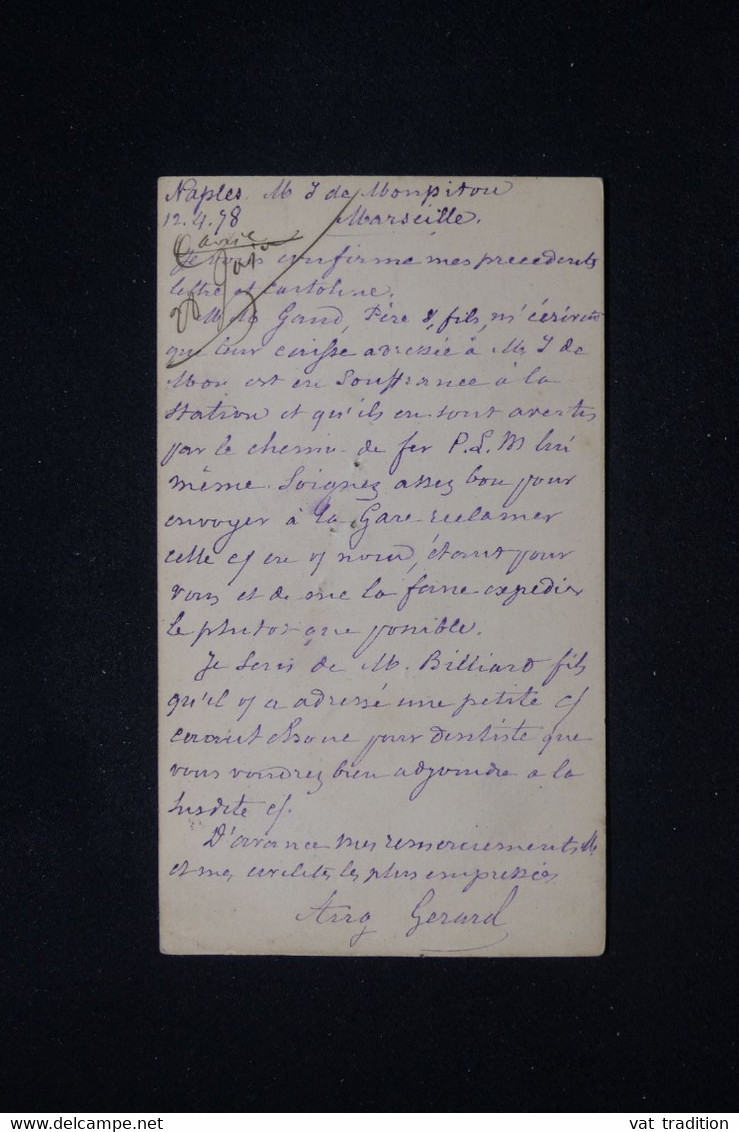 Naples. M J de Monpitou
12.4.78 Marseille.
Je vous confirme mes precedents
lettre et cartoline.
MM Gand, Père & fils, m'écrivent
que leur caisse adressée à M J de
Mon est en Souffrance à la
station et qu'ils en sont avertis
par le chemin de fer P.L.M lui
même. Soignez assez bon pour
envoyer à la Gare reclamer
celle c/ en v/ nom, étant pour
vous et de me la faire expedier
le plutot que possible.
Je seris de M. Billiard fils
qu'il v/ a adressé une petite c/
pour dentiste que
vous voudrez bien adjoindre a la
susdite c/.
D'avance mes remerciements M
et mes civilites les plus empressées
Aug Gerard
delcampe.net
vat tradition